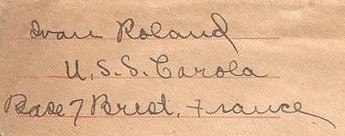 Ivan Roland
U.S.S. Carola
Base 7 Brest, France